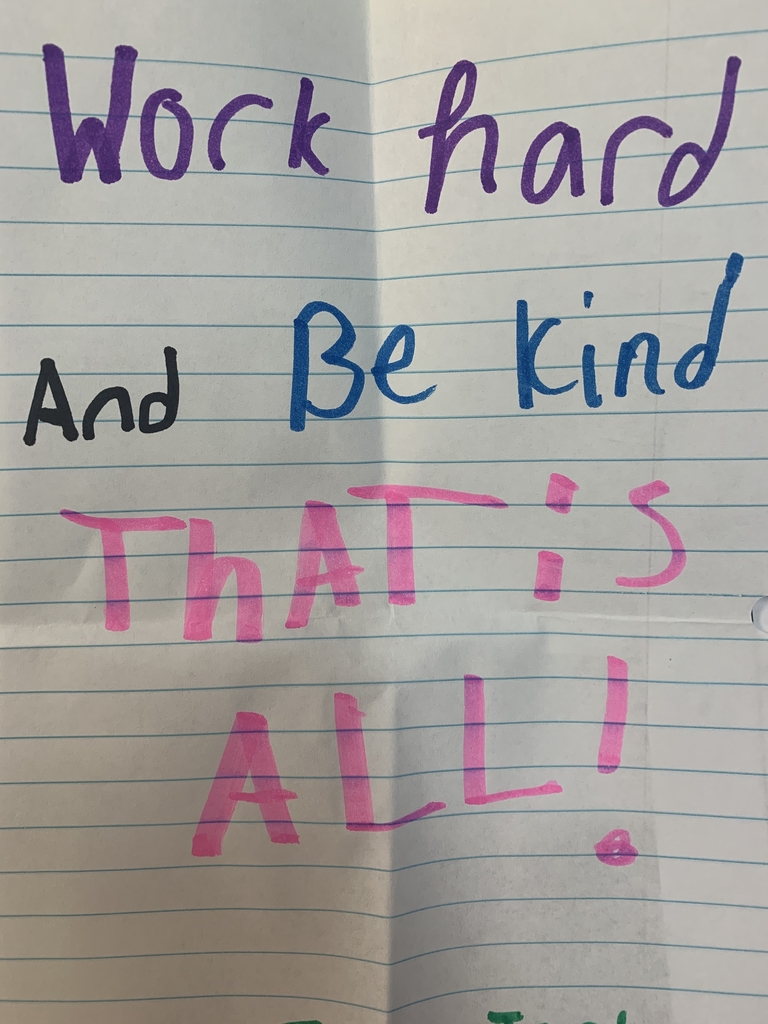 Work hard
And Be kind
ThAT is
ALL!